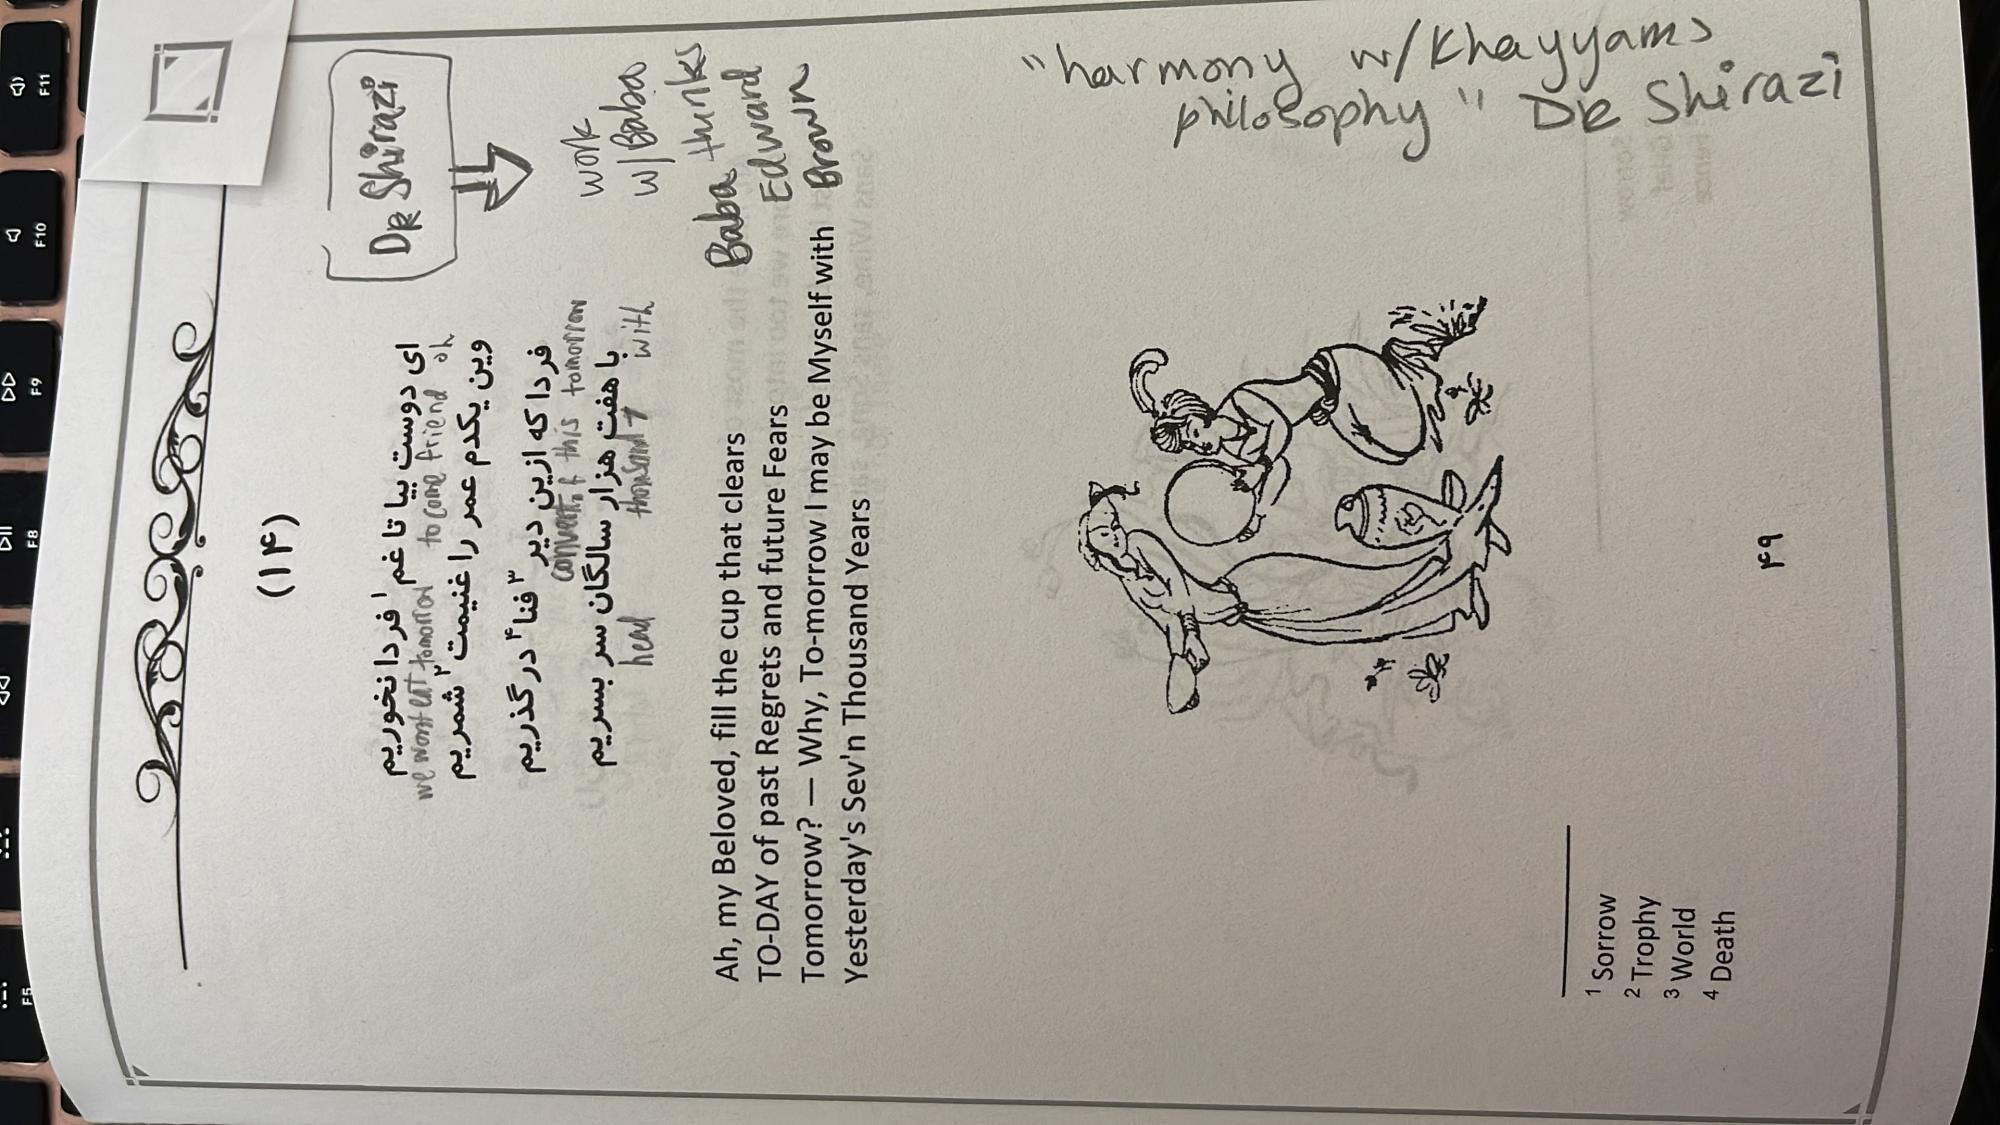 (۱۴)
DR Shirazi
ای دوست بیا تا غم¹ فردا نخوریم
we wont eat tomorrow to come friend oh
وین یکدم عمر را غنیمت² شمریم
فردا که ازین دیر³ فنا⁴ درگذریم
convent of this tomorrow
با هفت هزار سالگان سر بسریم
head thousand 7 with
work
w/ Baba
Baba thinks
Edward
Brown
Ah, my Beloved, fill the cup that clears
TO-DAY of past Regrets and future Fears
Tomorrow? — Why, To-morrow I may be Myself with
Yesterday's Sev'n Thousand Years
"harmony w/Khayyams
philosophy" DR Shirazi
1 Sorrow
2 Trophy
3 World
4 Death
۴۹
F5
F8
F9
F10
F11